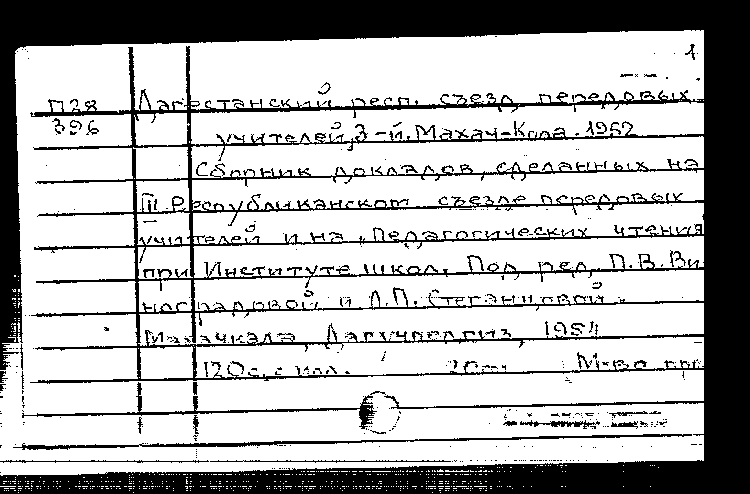 1
П28 Дагестанский респ. съезд передовых
396 учителей, 3-й. Махач-Кала. 1952
Сборник докладов, сделанных на
III Республиканском съезде передовых
учителей и на „Педагогических чтения
при Институте школ. Под ред. П.В. Ви-
ноградовой и Л.П. Стеганцовой.
Махачкала, Дагучпедгиз, 1954
120 с. с илл. 20 см. М-во пр